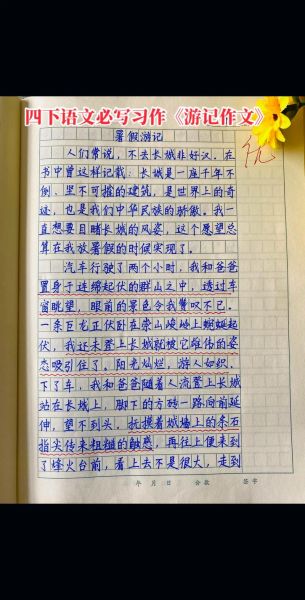 四下语文必写习作《游记作文》
优
暑假游记
人们常说,不去长城非好汉。在
书中曾这样记载:长城是一座千年不
倒、坚不可摧的建筑,是世界上的奇
迹,也是我们中华民族的骄傲。我一
直想要目睹长城的风姿,这个愿望总
算在我放暑假的时候实现了。
汽车行驶了两个小时,我和爸爸
置身于连绵起伏的群山之中,透过车
窗眺望,眼前的景色令我赞叹不已。
一条巨龙正伏卧在崇山峻岭上蜿蜒起
伏,我还未登上长城就被它雄伟的姿
态吸引住了。阳光灿烂,游人如织,
下了车,我和爸爸随着人流登上长城
站在长城上,脚下的方砖一路向前延
伸,望不到头,抚摸着城墙上的条石
指尖传来粗糙的触感,再往上便来到
了烽火台前,看上去不是很大,走到
年 月 日 合数 签字